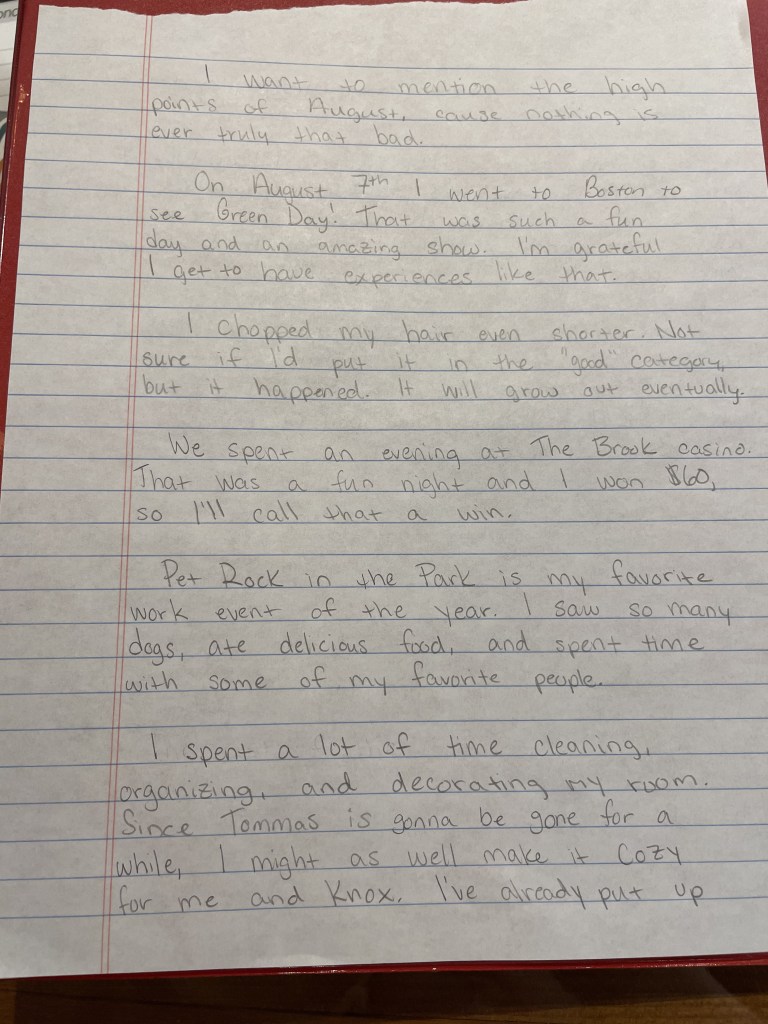 I want to mention the high
points of August, cause nothing is
ever truly that bad.
On August 7th I went to Boston to
see Green Day! That was such a fun
day and an amazing show. I'm grateful
I get to have experiences like that.
I chopped my hair even shorter. Not
sure if I'd put it in the "good" category,
but it happened. It will grow out eventually.
We spent an evening at The Brook casino.
That was a fun night and I won $60,
so I'll call that a win.
Pet Rock in the Park is my favorite
work event of the year. I saw so many
dogs, ate delicious food, and spent time
with some of my favorite people.
I spent a lot of time cleaning,
organizing, and decorating my room.
Since Tommas is gonna be gone for a
while, I might as well make it cozy
for me and Knox. I've already put up